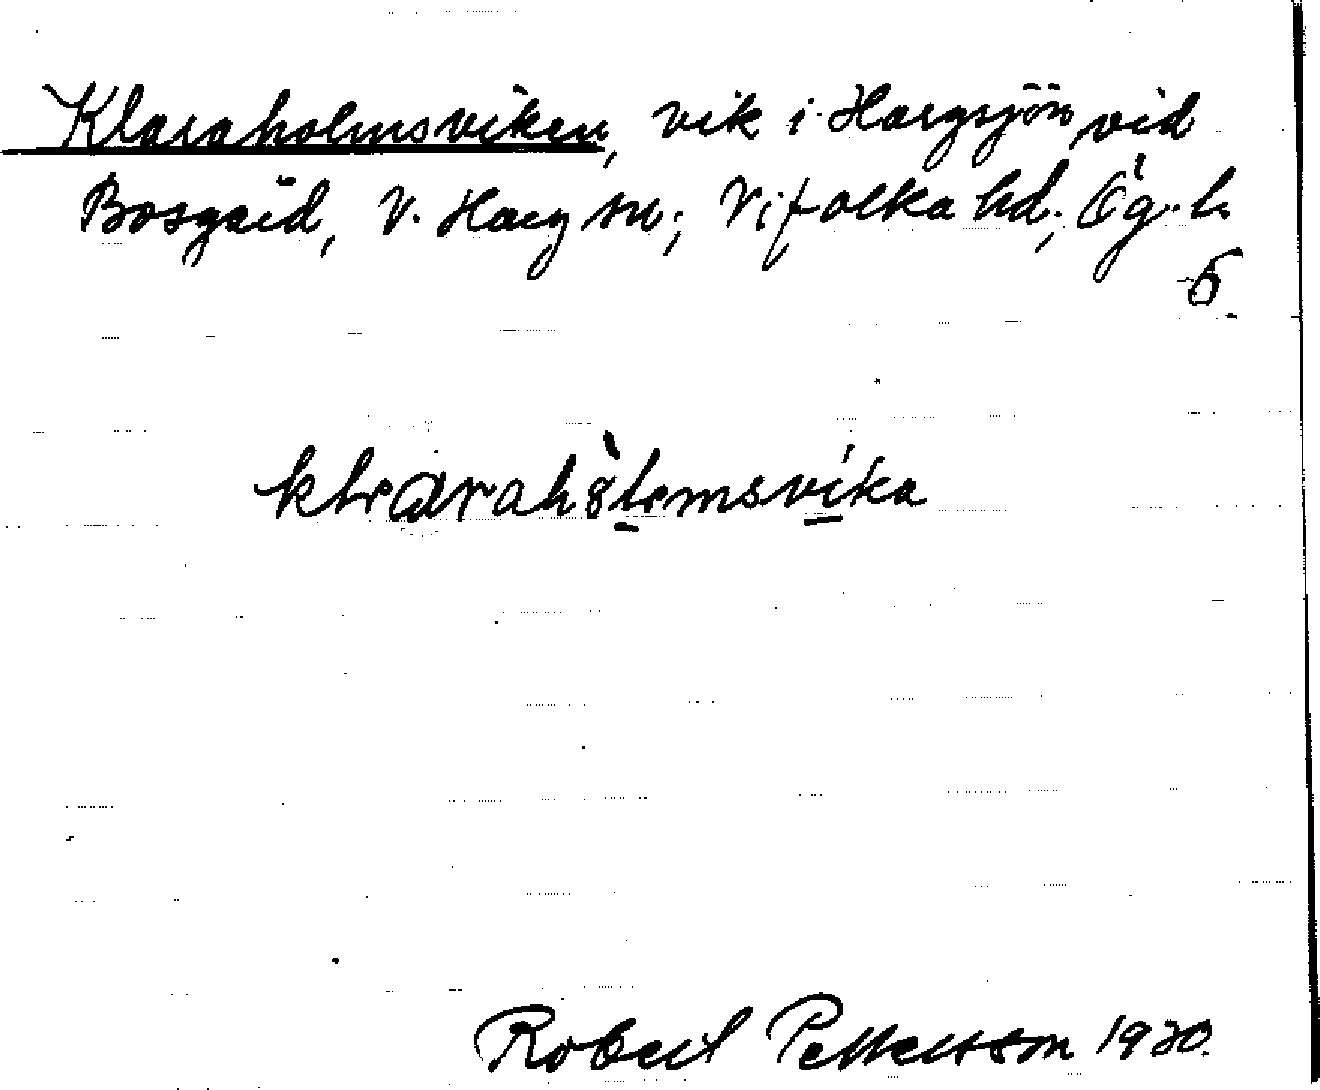 Klaraholmsviken, vik i Hargsjön vid
Bosgård, V. Harg sn; Vifolka hd; Ög. l.
5
Robert Pettersson 1930.